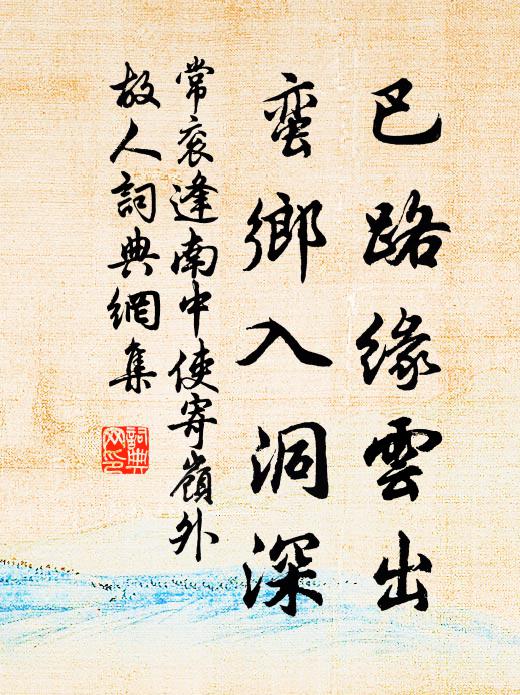 巴路緣雲出
蛮鄉入洞深
常袞逢南中使寄嶺外
故人詞典網集
詞典
网印